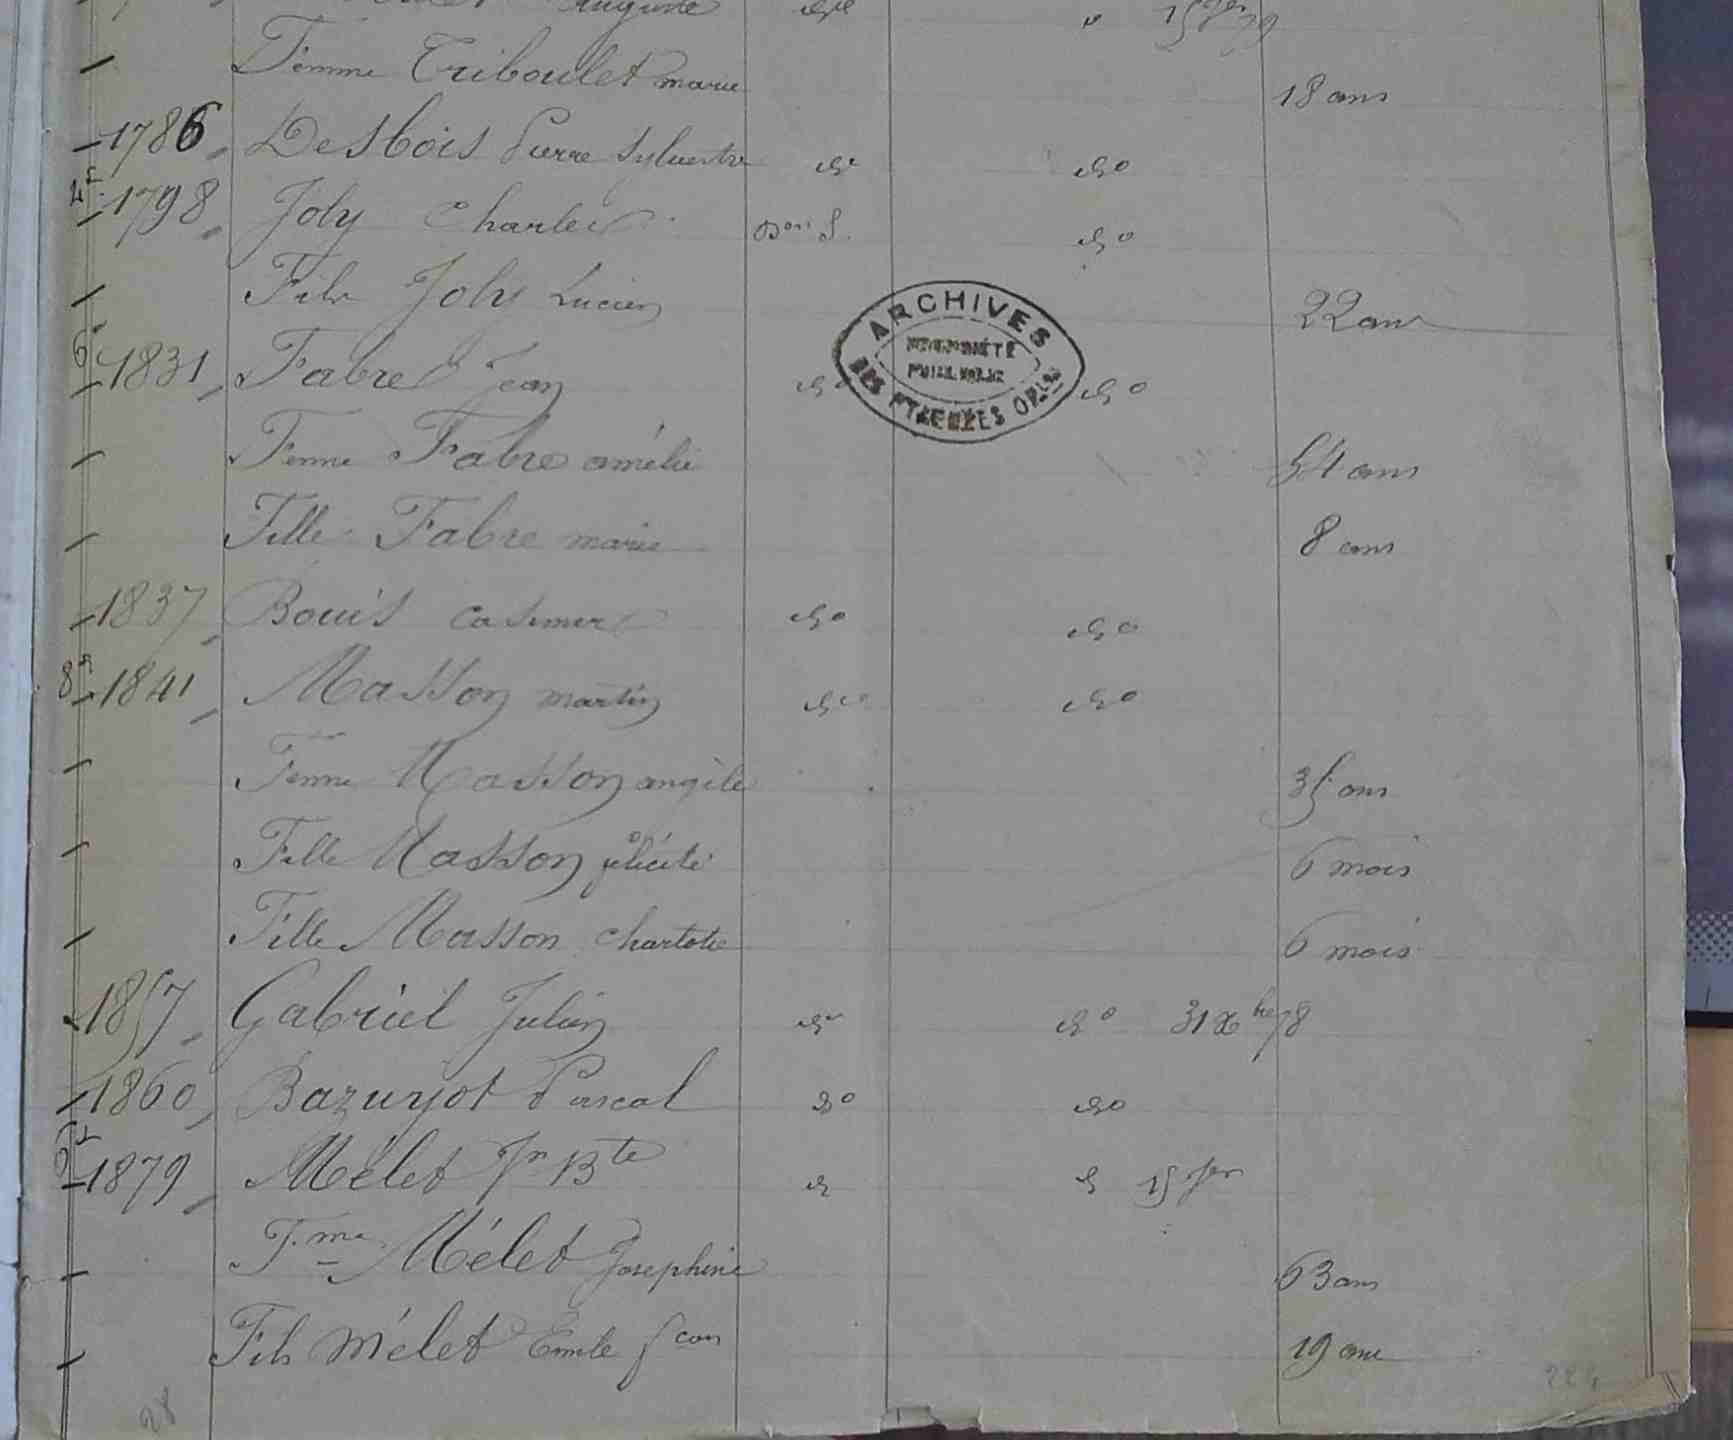 Auguste
Femme Triboulet marie 18 ans
1786 Desbois Pierre Sylvestre do do
4 1798 Joly Charles Don S. do
Fils Joly Lucien 22 ans
ARCHIVES
PROPRIÉTÉ
PUBLIQUE
DES PYRÉNÉES ORles
6 1831 Fabre Jean do do
Femme Fabre amélie 54 ans
Fille Fabre marie 8 ans
1837 Bouis Casimir do do
8 1841 Masson martin do do
Femme Masson angèle 35 ans
Fille Masson félicité 6 mois
Fille Masson charlotte 6 mois
1857 Gabriel Julien do do 31 Xbre 78
1860 Bazuyot Pascal do do
1879 Mélet Jn Bte do d 15 Jer
Fme Mélet Josephine 63 ans
Fils Mélet Emile fcon 19 ans
28